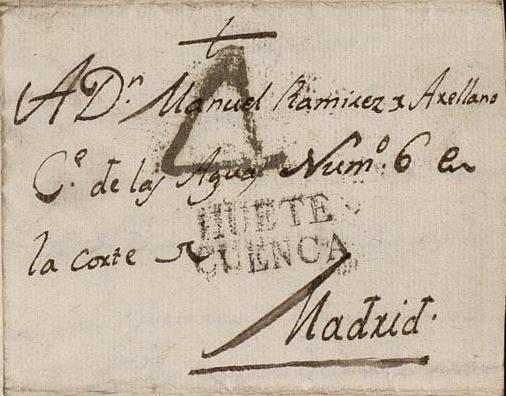 A Dn. Manuel Ramirez y Arellano
Ce. de las Aguas Numo. 6 en
la corte de
HUETE
CUENCA
Madrid.